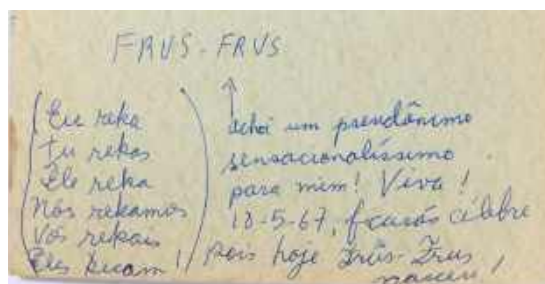 FRUS-FRUS
(Eu reka
Tu rekas
Ele reka
Nós rekamos
Vós rekais
Eles recam!)
Achei um pseudônimo
sensacionalíssimo
para mim! Viva!
18-5-67, ficarás célebre
pois hoje Frus-Frus
nasceu!